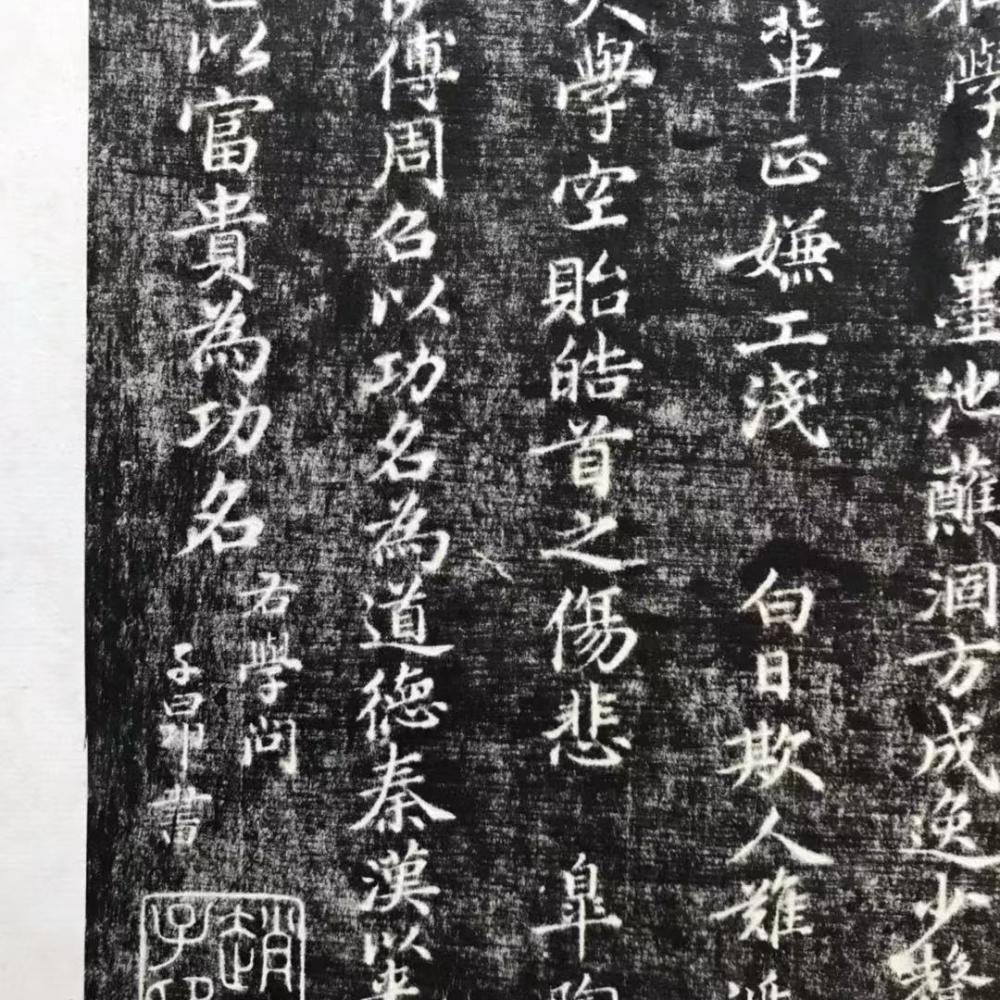 學業墨池蘸涸方成逸少
輩正嫌工淺 白日欺人難
學空貽皓首之傷悲 皐陶
傅周召以功名為道德秦漢以来
以富貴為功名
右學問
子昂書
趙子